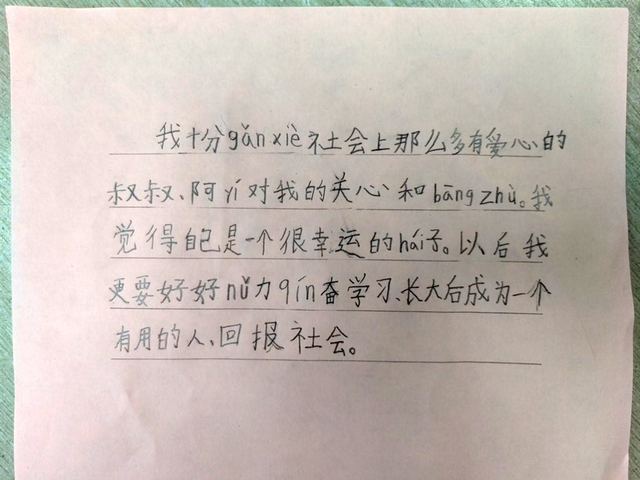 我十分gǎnxiè社会上那么多有爱心的
叔叔、阿yí对我的关心和bāngzhù。我
觉得自己是一个很幸运的hái子。以后我
更要好好nǔ力qín奋学习、长大后成为一个
有用的人、回报社会。